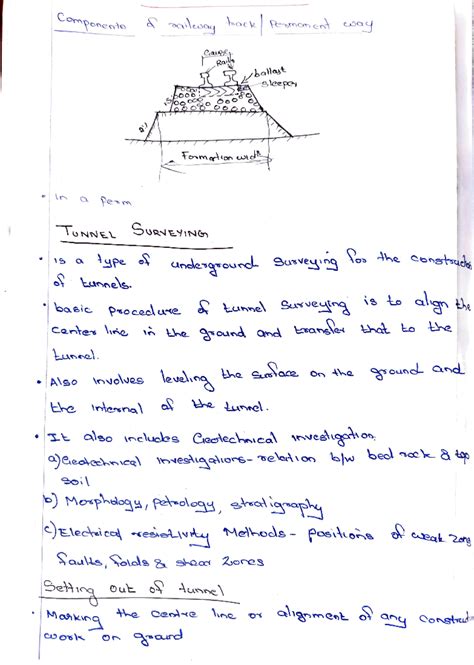 Components of railway track / Permanent way
Gauge
Rails
ballast
sleeper
Formation width
• In a perm
TUNNEL SURVEYING
• is a type of underground surveying for the constructi
of tunnels.
• basic procedure of tunnel surveying is to align the
center line in the ground and transfer that to the
tunnel.
• Also involves leveling the surface on the ground and
the internal of the tunnel.
• It also includes Geotechnical investigation.
a) Geotechnical investigations - relation b/w bed rock & top
soil
b) Morphology, petrology, stratigraphy
c) Electrical resistivity Methods - positions of weak Zons
faults, folds & shear zones
Setting out of tunnel
• Marking the centre line or alignment of any construct
work on ground